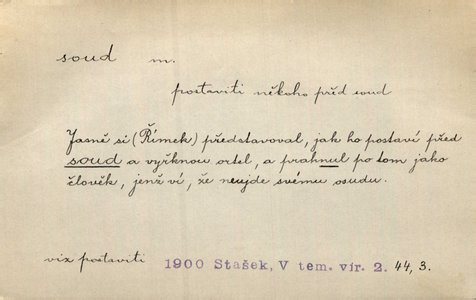 soud m.
postaviti někoho před soud
Jasně si (Římek) představoval, jak ho postaví před
soud a vyřknou ortel, a prahnul po tom jako
člověk, jenž ví, že neujde svému osudu.
viz postaviti 1900 Stašek, V tem. vír. 2. 44, 3.